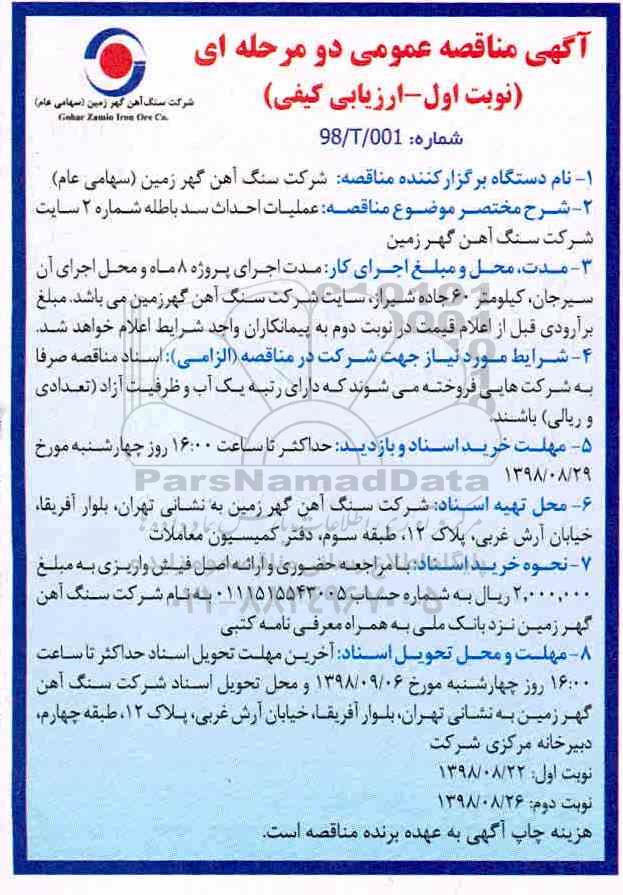 آگهی مناقصه عمومی دو مرحله ای
(نوبت اول-ارزیابی کیفی)
شرکت سنگ آهن گهر زمین (سهامی عام)
Gohar Zamin Iron Ore Co.
شماره: 98/T/001
۱- نام دستگاه برگزارکننده مناقصه: شرکت سنگ آهن گهر زمین (سهامی عام)
۲- شرح مختصر موضوع مناقصه: عملیات احداث سد باطله شماره ۲ سایت
شرکت سنگ آهن گهر زمین
۳- مدت، محل و مبلغ اجرای کار: مدت اجرای پروژه ۸ ماه و محل اجرای آن
سیرجان، کیلومتر ۶۰ جاده شیراز، سایت شرکت سنگ آهن گهرزمین می باشد. مبلغ
برآوردی قبل از اعلام قیمت در نوبت دوم به پیمانکاران واجد شرایط اعلام خواهد شد.
۴- شرایط مورد نیاز جهت شرکت در مناقصه (الزامی): اسناد مناقصه صرفا
به شرکت هایی فروخته می شوند که دارای رتبه یک آب و ظرفیت آزاد (تعدادی
و ریالی) باشند.
۵- مهلت خرید اسناد و بازدید: حداکثر تا ساعت ۱۶:۰۰ روز چهارشنبه مورخ
۱۳۹۸/۰۸/۲۹
ParsNamadData
۶- محل تهیه اسناد: شرکت سنگ آهن گهر زمین به نشانی تهران، بلوار آفریقا،
خیابان آرش غربی، پلاک ۱۲، طبقه سوم، دفتر کمیسیون معاملات
۷- نحوه خرید اسناد: با مراجعه حضوری و ارائه اصل فیش واریزی به مبلغ
۲,۰۰۰,۰۰۰ ریال به شماره حساب ۰۱۱۱۵۱۵۵۴۳۰۰۵ به نام شرکت سنگ آهن
گهر زمین نزد بانک ملی به همراه معرفی نامه کتبی
۸- مهلت و محل تحویل اسناد: آخرین مهلت تحویل اسناد حداکثر تا ساعت
۱۶:۰۰ روز چهارشنبه مورخ ۱۳۹۸/۰۹/۰۶ و محل تحویل اسناد شرکت سنگ آهن
گهر زمین به نشانی تهران، بلوار آفریقا، خیابان آرش غربی، پلاک ۱۲، طبقه چهارم،
دبیرخانه مرکزی شرکت
نوبت اول: ۱۳۹۸/۰۸/۲۲
نوبت دوم: ۱۳۹۸/۰۸/۲۶
هزینه چاپ آگهی به عهده برنده مناقصه است.